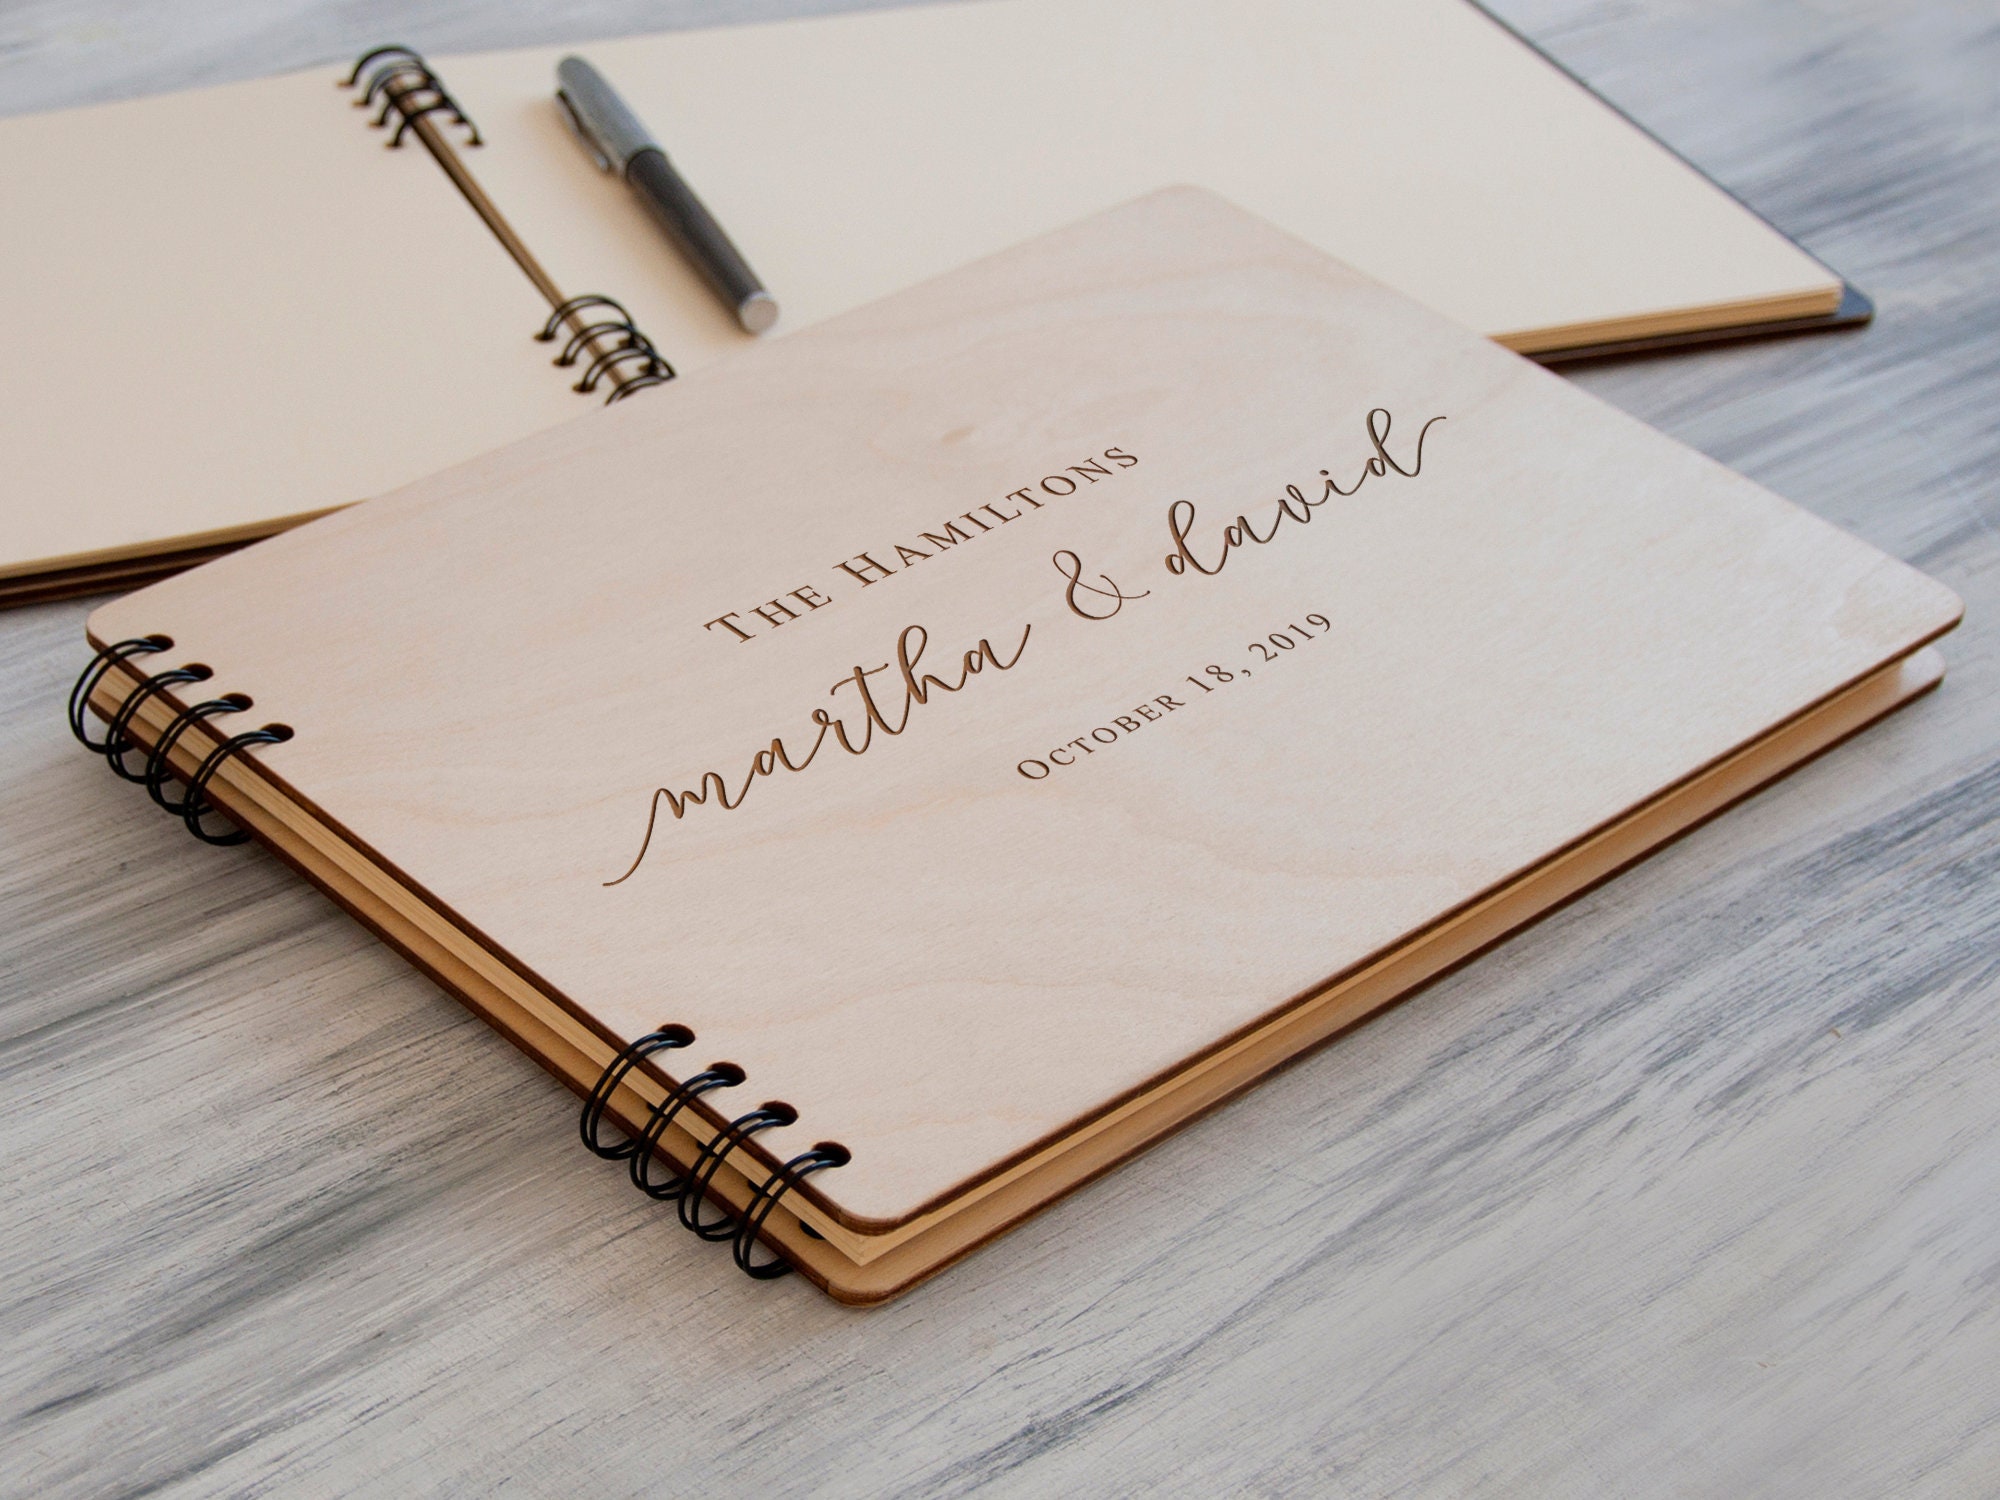 The Hamiltons
martha & david
October 18, 2019